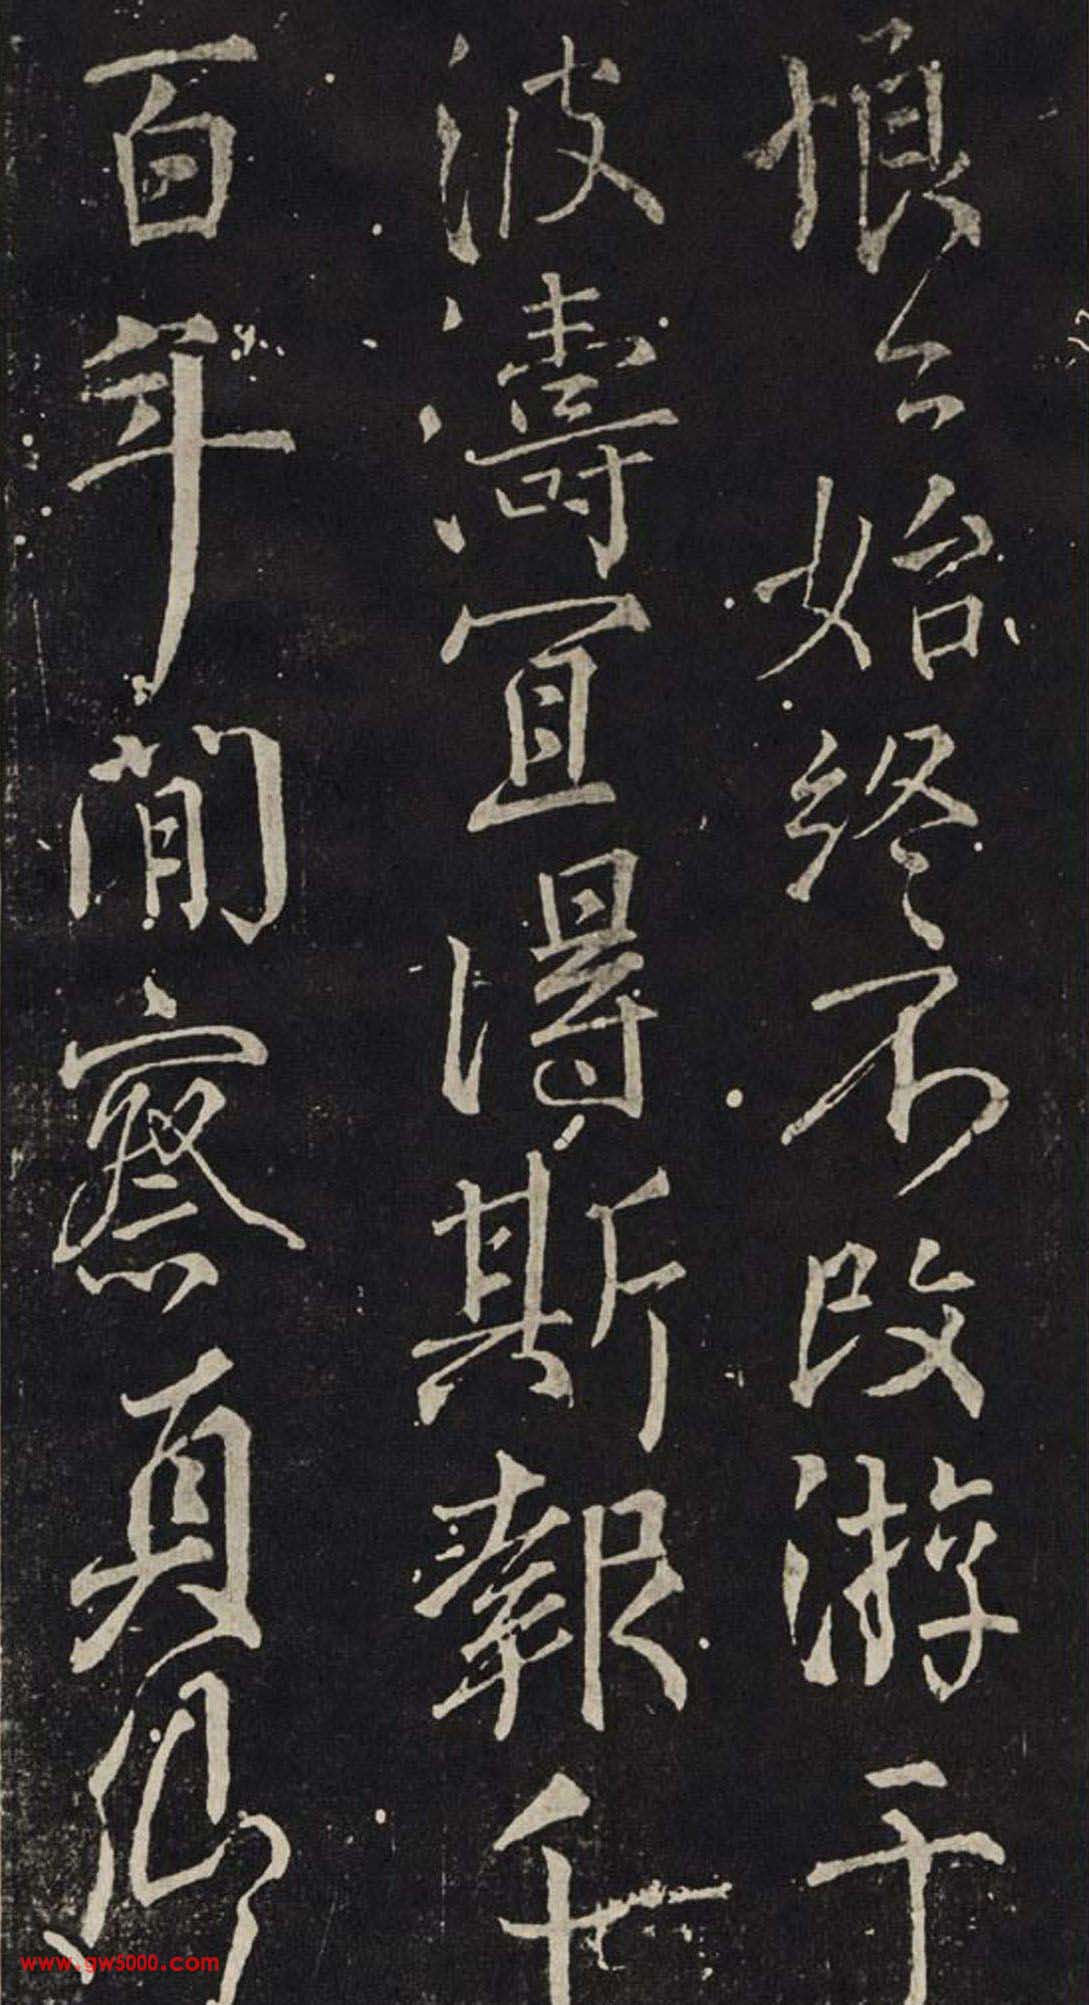 悢〻始終不改游于
波濤宜得斯報千
百年間察真卿
www.gw5000.com